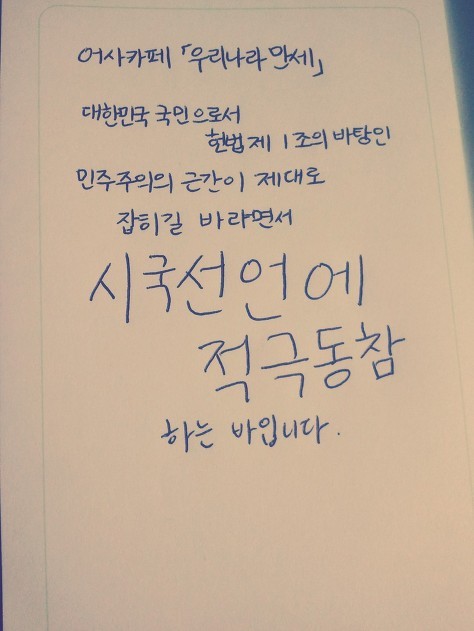 어사카페 「우리나라 만세」
대한민국 국민으로서
헌법 제 1조의 바탕인
민주주의의 근간이 제대로
잡히길 바라면서
시국선언에
적극동참
하는 바입니다.